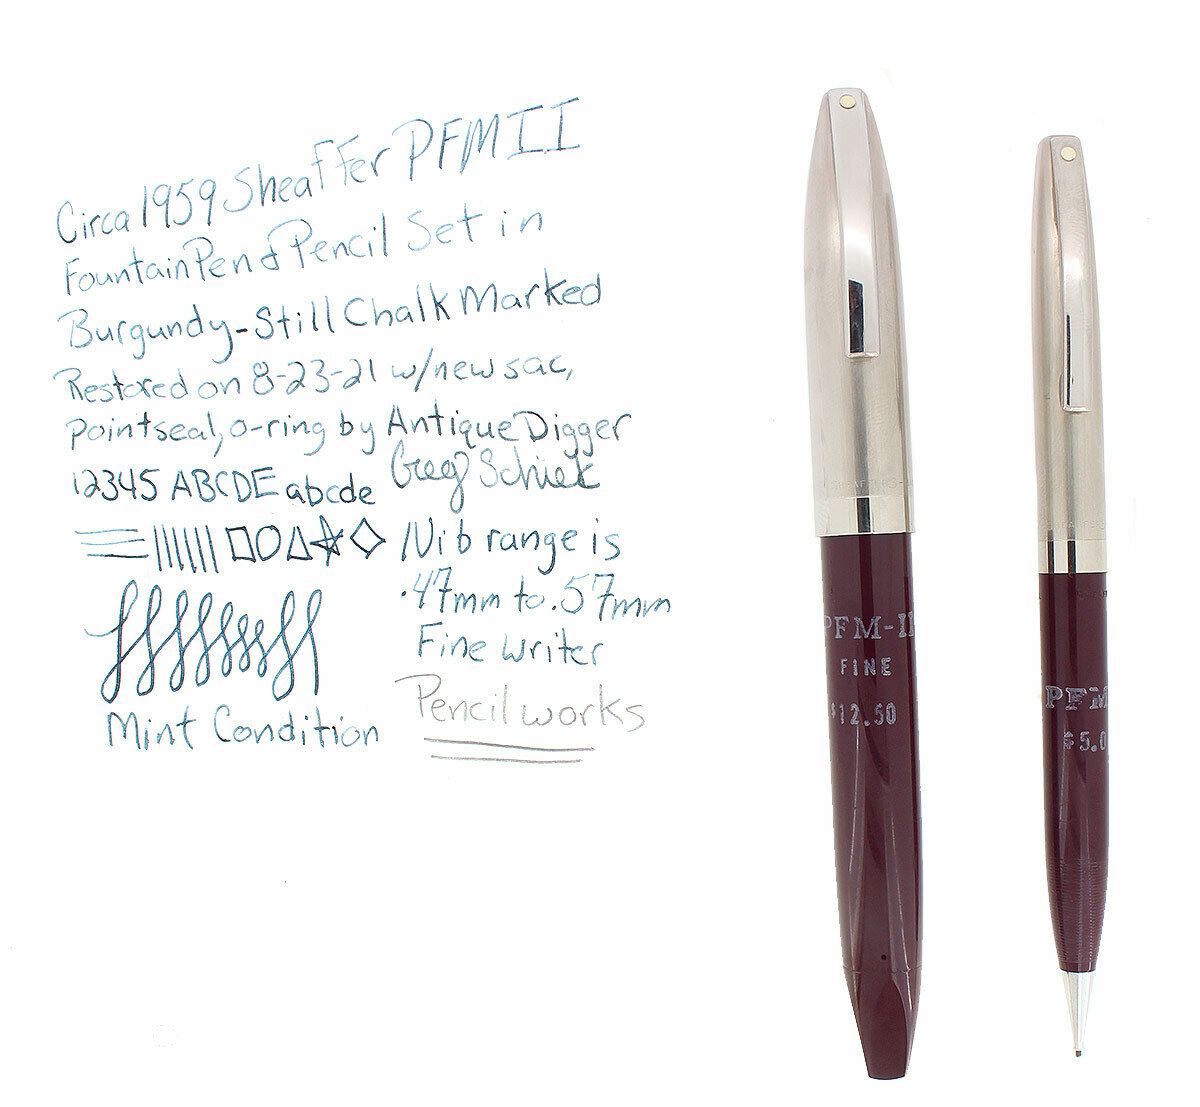 Circa 1959 Sheaffer PFM II
Fountain Pen & Pencil Set in
Burgundy-Still Chalk Marked
Restored on 8-23-21 w/new sac,
pointseal, o-ring by Antique Digger
Greg Schiek
12345 ABCDE abcde
Nib range is
.47mm to .57mm
Fine writer
Mint Condition
Pencil works
PFM-II
FINE
$12.50
PFM
$5.0